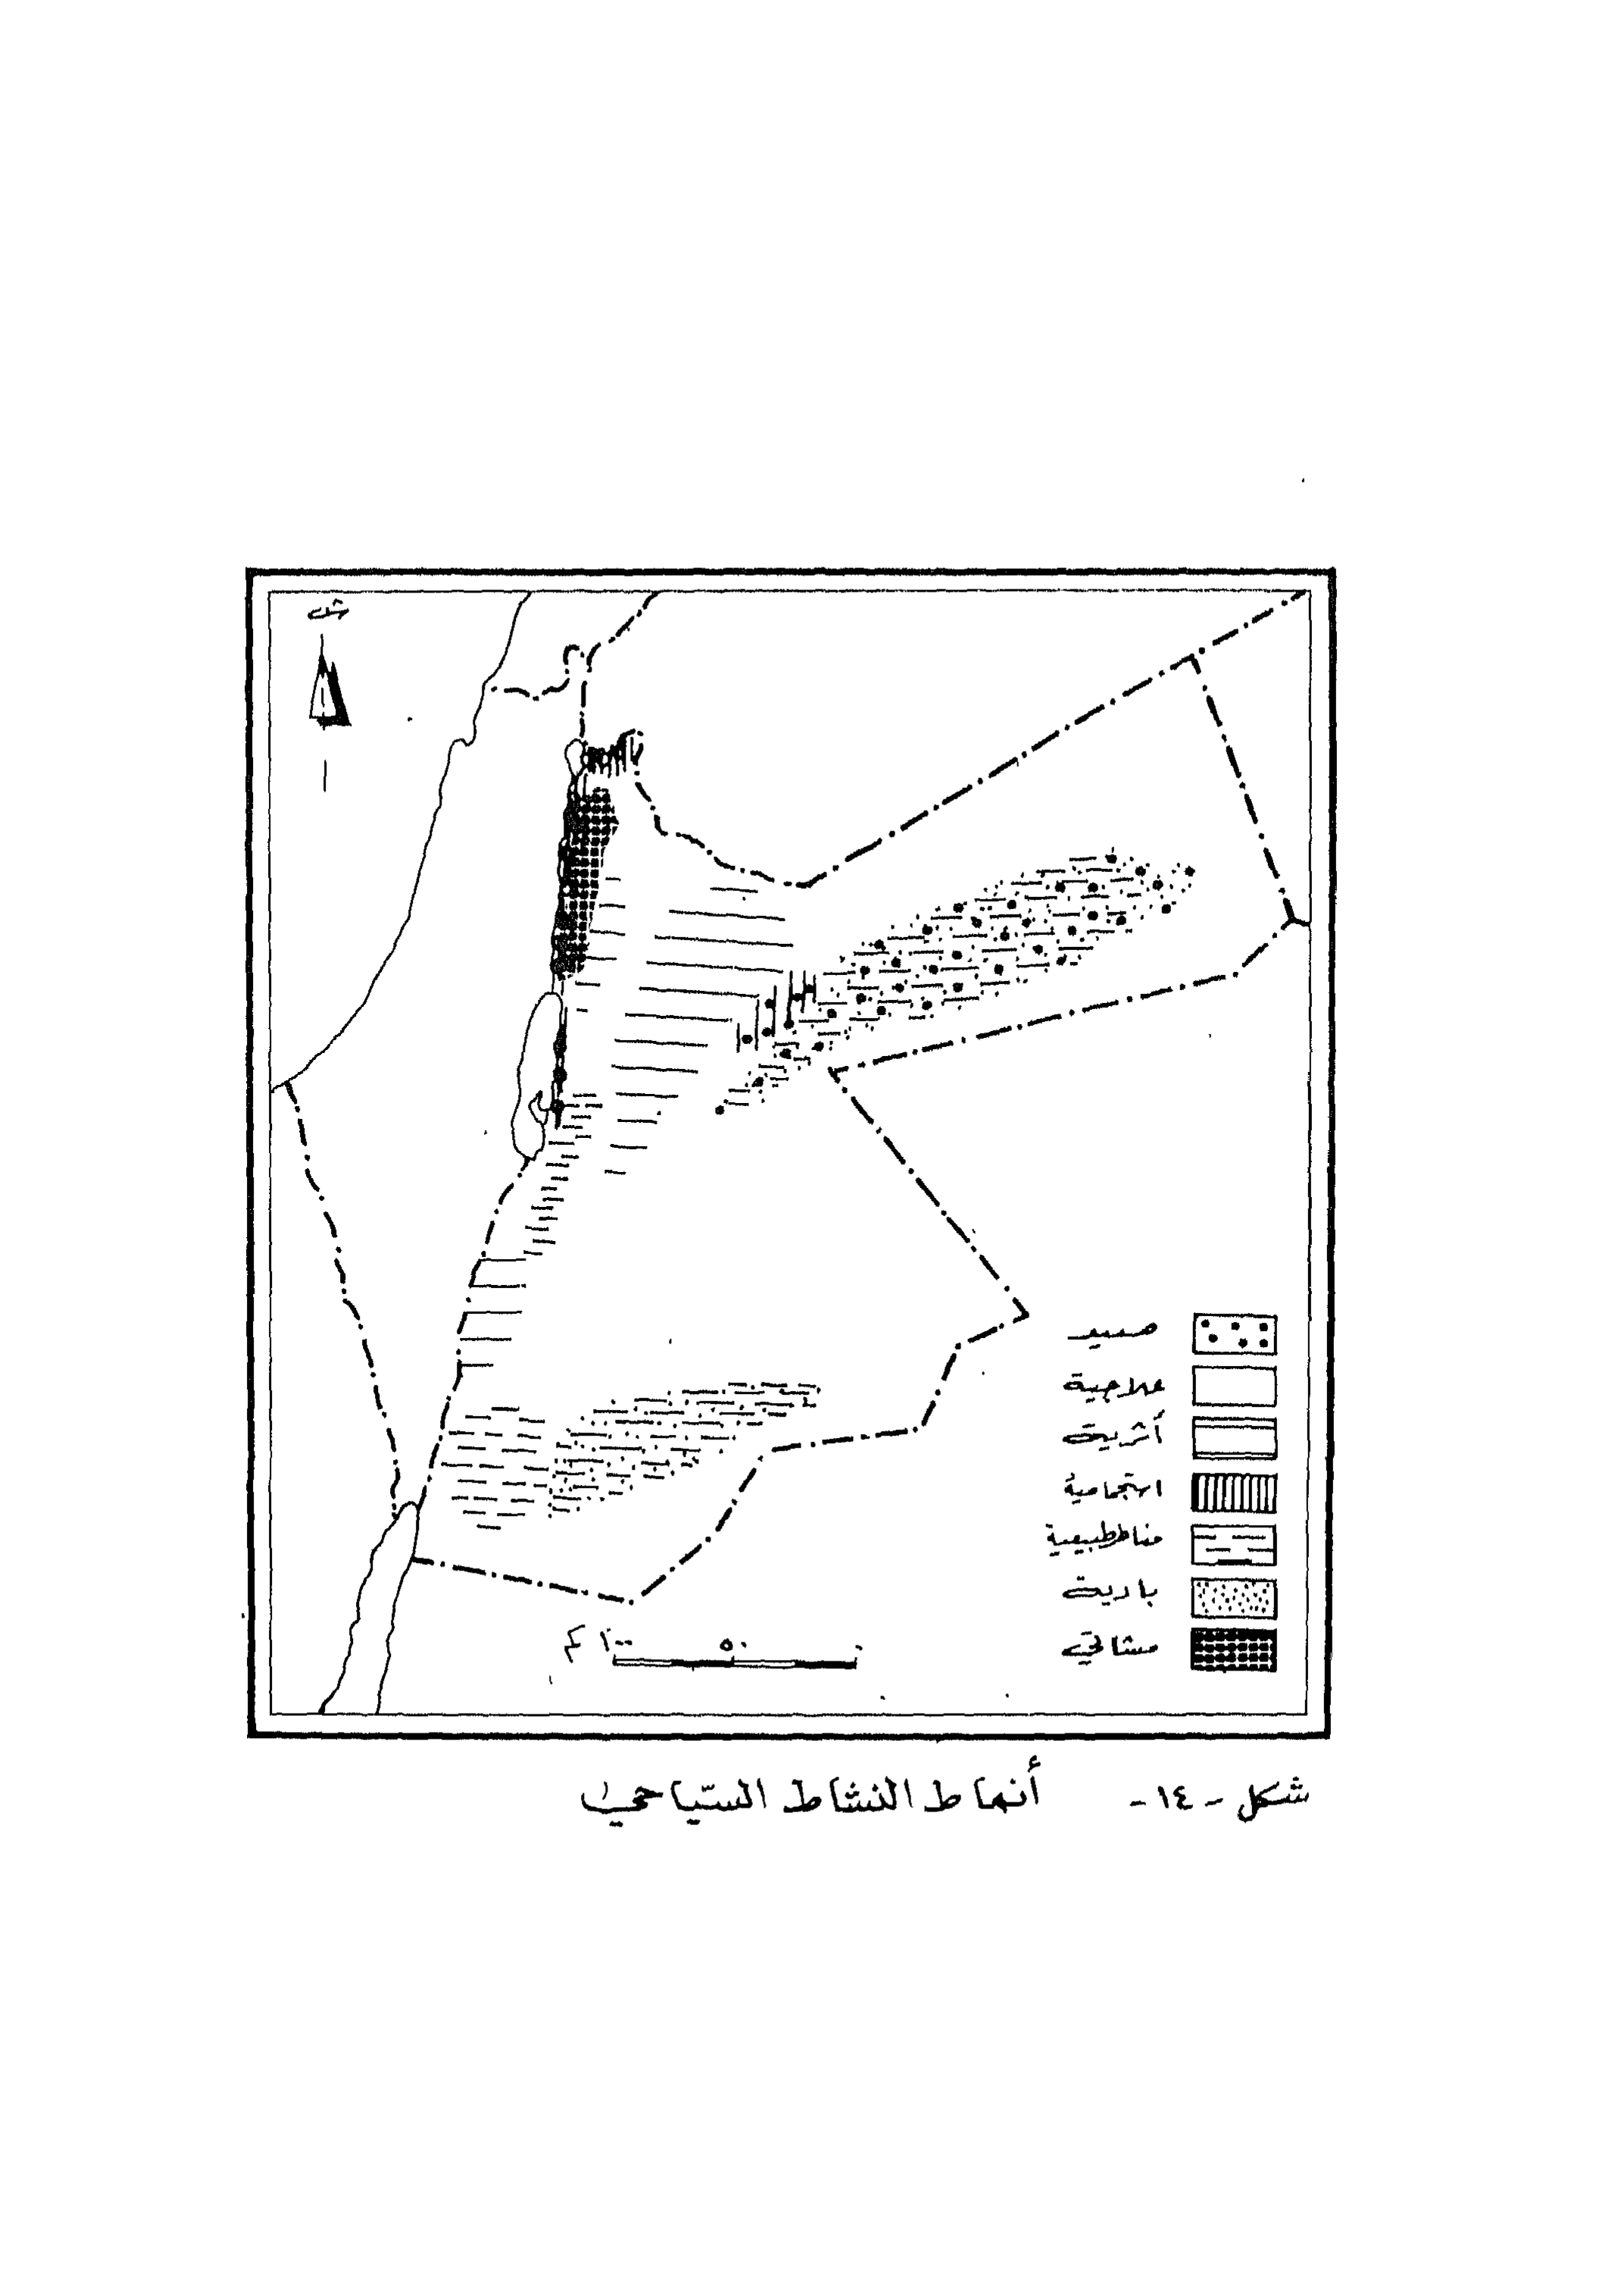 ش
صيد
علاجية
أثرية
استجمامية
مناظر طبيعية
بادية
مشاتي
٠ ٥٠ ١٠٠ كم
شكل - ١٤ - أنماط النشاط السّياحي